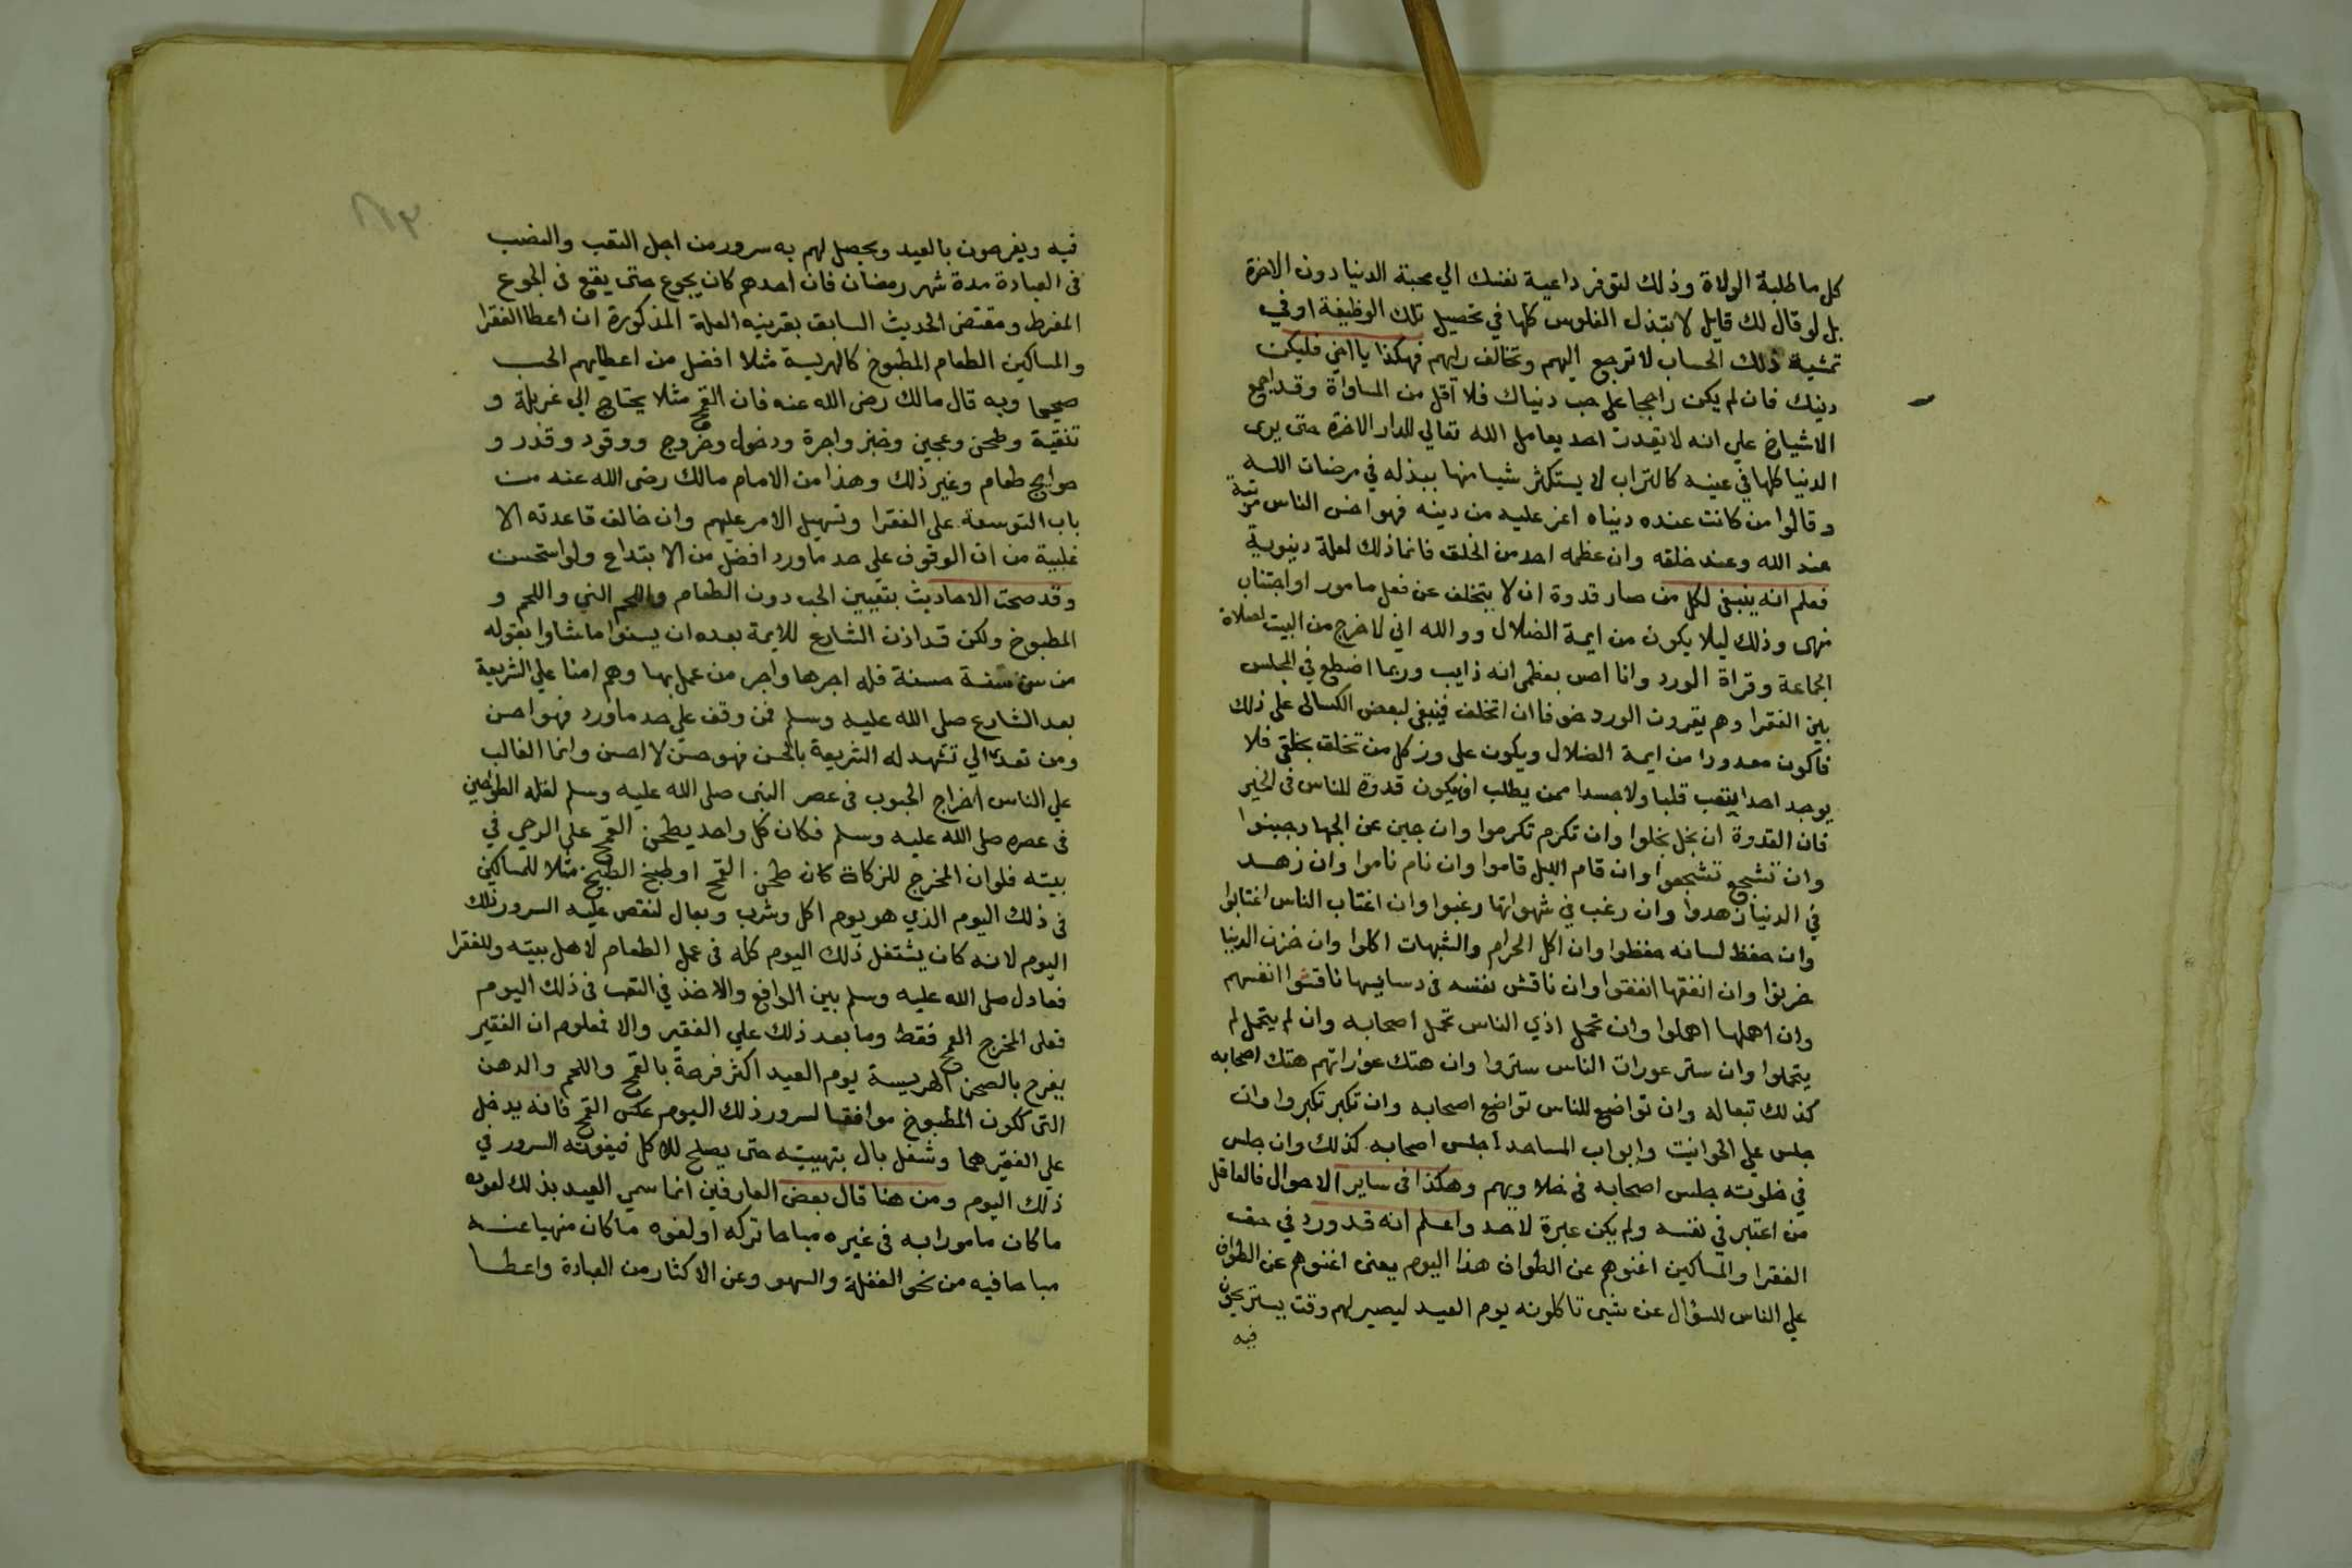 كل ما طلبة الولاة وذلك لتوفر داعية نفسك الي محبة الدنيا دون الاخرة
بل لو قال لك قايل لا تبتذل الفلوس كلها في تحصيل تلك الوظيفة او في
تمشية ذلك الحساب لا ترجع اليهم وتخالف رايهم فهكذا يا اخي فليكن
دينك فان لم يكن راجحا على حب دنياك فلا اقل من المساواة وقد اجمع
الاشياخ علي انه لا يقدر احد يعامل الله تعالي للدار الاخرة حتى يرى
الدنيا كلها في عينه كالتراب لا يستكثر شيا منها يبذله في مرضات الله
وقالوا من كانت عنده دنياه اعز عليه من دينه فهو اخس الناس مرتبة
عند الله وعند خلقه وان عظمه احد من الخلق فانما ذلك لعلة دنيوية
فعلم انه ينبغى لكل من صار قدوة ان لا يتخلف عن فعل مامور او اجتناب
نهى وذلك ليلا يكون من ايمة الضلال ووالله اني لاخرج من البيت لصلاة
الجماعة وقراة الورد وانا احس بعظمى انه ذايب وربما اضطجع في المجلس
بين الفقرا وهم يقرون الورد خوفا ان اتخلف فينبغى لبعض الكسالى على ذلك
فاكون معدودا من ايمة الضلال ويكون على وزر كل من تخلق بخلقى فلا
يوجد احد ايتعب قلبا ولا جسدا ممن يطلب ان يكون قدوة للناس في الخير
فان القدوة ان بخل بخلوا وان تكرم تكرموا وان جبن عن الجهاد جبنوا
وان تشجع تشجعوا وان قام الليل قاموا وان نام ناموا وان زهد
في الدنيا زهدوا وان رغب في شهواتها رغبوا وان اغتاب الناس اغتابوا
وان حفظ لسانه حفظوا وان اكل الحرام والشبهات اكلوا وان خزن الدنيا
خزنوا وان انفقها انفقوا وان ناقش نفسه في دسايسها ناقشوا انفسهم
وان اهملها اهملوا وان تحمل اذي الناس تحمل اصحابه وان لم يتحمل لم
يتحملوا وان ستر عورات الناس ستروا وان هتك عوراتهم هتك اصحابه
كذلك تبعا له وان تواضع للناس تواضع اصحابه وان تكبر تكبروا وان
جلس علي الحوانيت وابواب المساجد اجلس اصحابه كذلك وان جلس
في خلوته جلس اصحابه في خلاويهم وهكذا في ساير الاحوال فالعاقل
من اعتبر في نفسه ولم يكن عبرة لاحد واعلم انه قد ورد في حق
الفقرا والمساكين اغنوهم عن الطواف هذا اليوم يعنى اغنوهم عن الطواف
علي الناس للسؤال عن شيى تاكلونه يوم العيد ليصير لهم وقت يستريحون
فيه
فيه ويفرحون بالعيد ويحصل لهم به سرور من اجل التعب والنصب
في العبادة مدة شهر رمضان فان احدهم كان يجوع حتى يقع في الجوع
المفرط ومقتضى الحديث السابق بقرينه العلة المذكورة ان اعطا الفقرا
والمساكين الطعام المطبوخ كالهريسة مثلا افضل من اعطايهم الحب
صحيحا وبه قال مالك رضى الله عنه فان القمح مثلا يحتاج الي غربلة و
تنقية وطحن وعجين وخبز واجرة ودخول وخروج ووقود وقدر و
حوايج طعام وغير ذلك وهذا من الامام مالك رضى الله عنه من
باب التوسعة على الفقرا وتسهيل الامر عليهم وان خالف قاعدته الا
غلبية من ان الوقوف على حد ما ورد افضل من الابتداع ولو استحسن
وقد صحت الاحاديث بتعيين الحب دون الطعام واللحم الني واللحم و
المطبوخ ولكن قد اذن الشارع للايمة بعده ان يسنوا ما شاوا بقوله
من سن سنة حسنة فله اجرها واجر من عمل بها وهم امنا علي الشريعة
بعد الشارع صلى الله عليه وسلم فمن وقف علي حد ما ورد فهو احسن
ومن تعداه الي تشهد له الشريعة بالحسن فهو حسن لا احسن وانما الغالب
علي الناس اخراج الحبوب في عصر النبى صلى الله عليه وسلم لقلة الطواحين
في عصره صلى الله عليه وسلم فكان كل واحد يطحن القمح على الرحي في
بيته فلو ان المخرج للزكاة كان طحن القمح او طبخ الطبيخ مثلا للمساكين
في ذلك اليوم الذي هو يوم اكل وشرب وبعال لنقص عليه السرور ذلك
اليوم لانه كان يشتغل ذلك اليوم كله في عمل الطعام لاهل بيته وللفقرا
فعادل صلى الله عليه وسلم بين الدافع والاخذ في التعب في ذلك اليوم
فعلى المخرج القمح فقط وما بعد ذلك علي الفقير والا فمعلوم ان الفقير
يفرح بالصحن الهريسة يوم العيد اكثر فرحة بالقمح واللحم والدهن
التى لكون المطبوخ موافقا لسرور ذلك اليوم عكس القمح فانه يدخل
علي الفقير هما وشغل بال بتهييته حتى يصلح للاكل فيفوته السرور في
ذلك اليوم ومن هنا قال بعض العارفين انما سمي العيد بذلك لعوده
ما كان مامورا به في غيره مباحا تركه او لعوده ما كان منهيا عنه
مباحا فيه من نحو الغفلة والسهو وعن الاكثار من العبادة واعطا